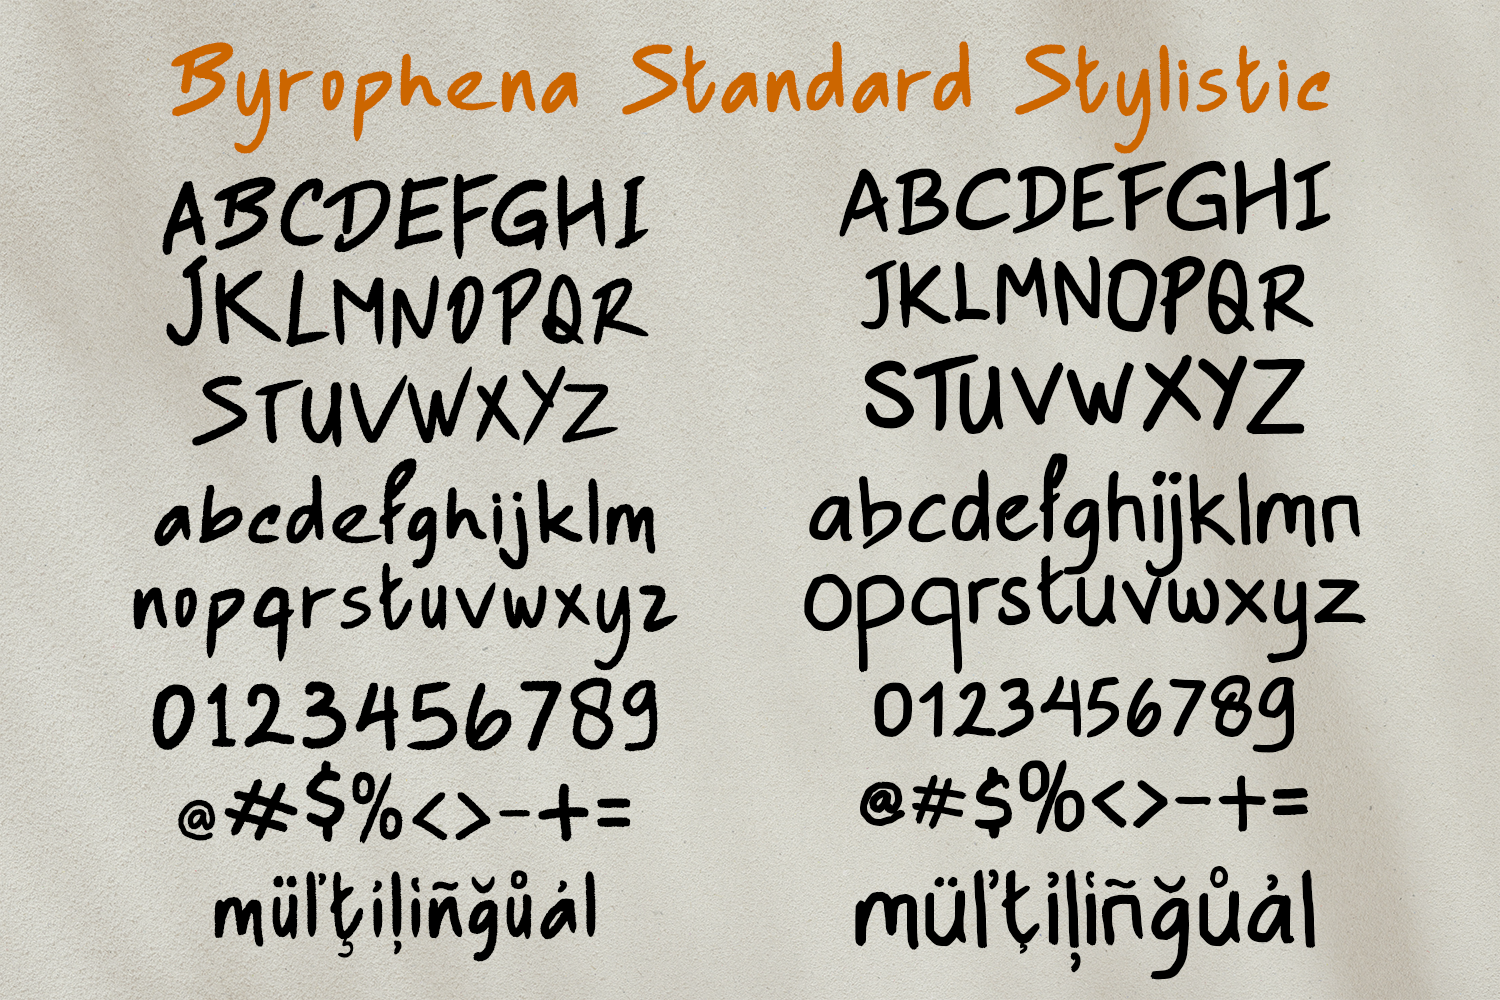 Byrophena Standard Stylistic
ABCDEFGHI
JKLMNOPQR
STUVWXYZ
abcdefghijklm
nopqrstuvwxyz
0123456789
@#$%<>-+=
müľţíļiñğůál
ABCDEFGHI
JKLMNOPQR
STUVWXYZ
abcdefghijklmn
opqrstuvwxyz
0123456789
@#$%<>-+=
müľţỉļiñğůảl